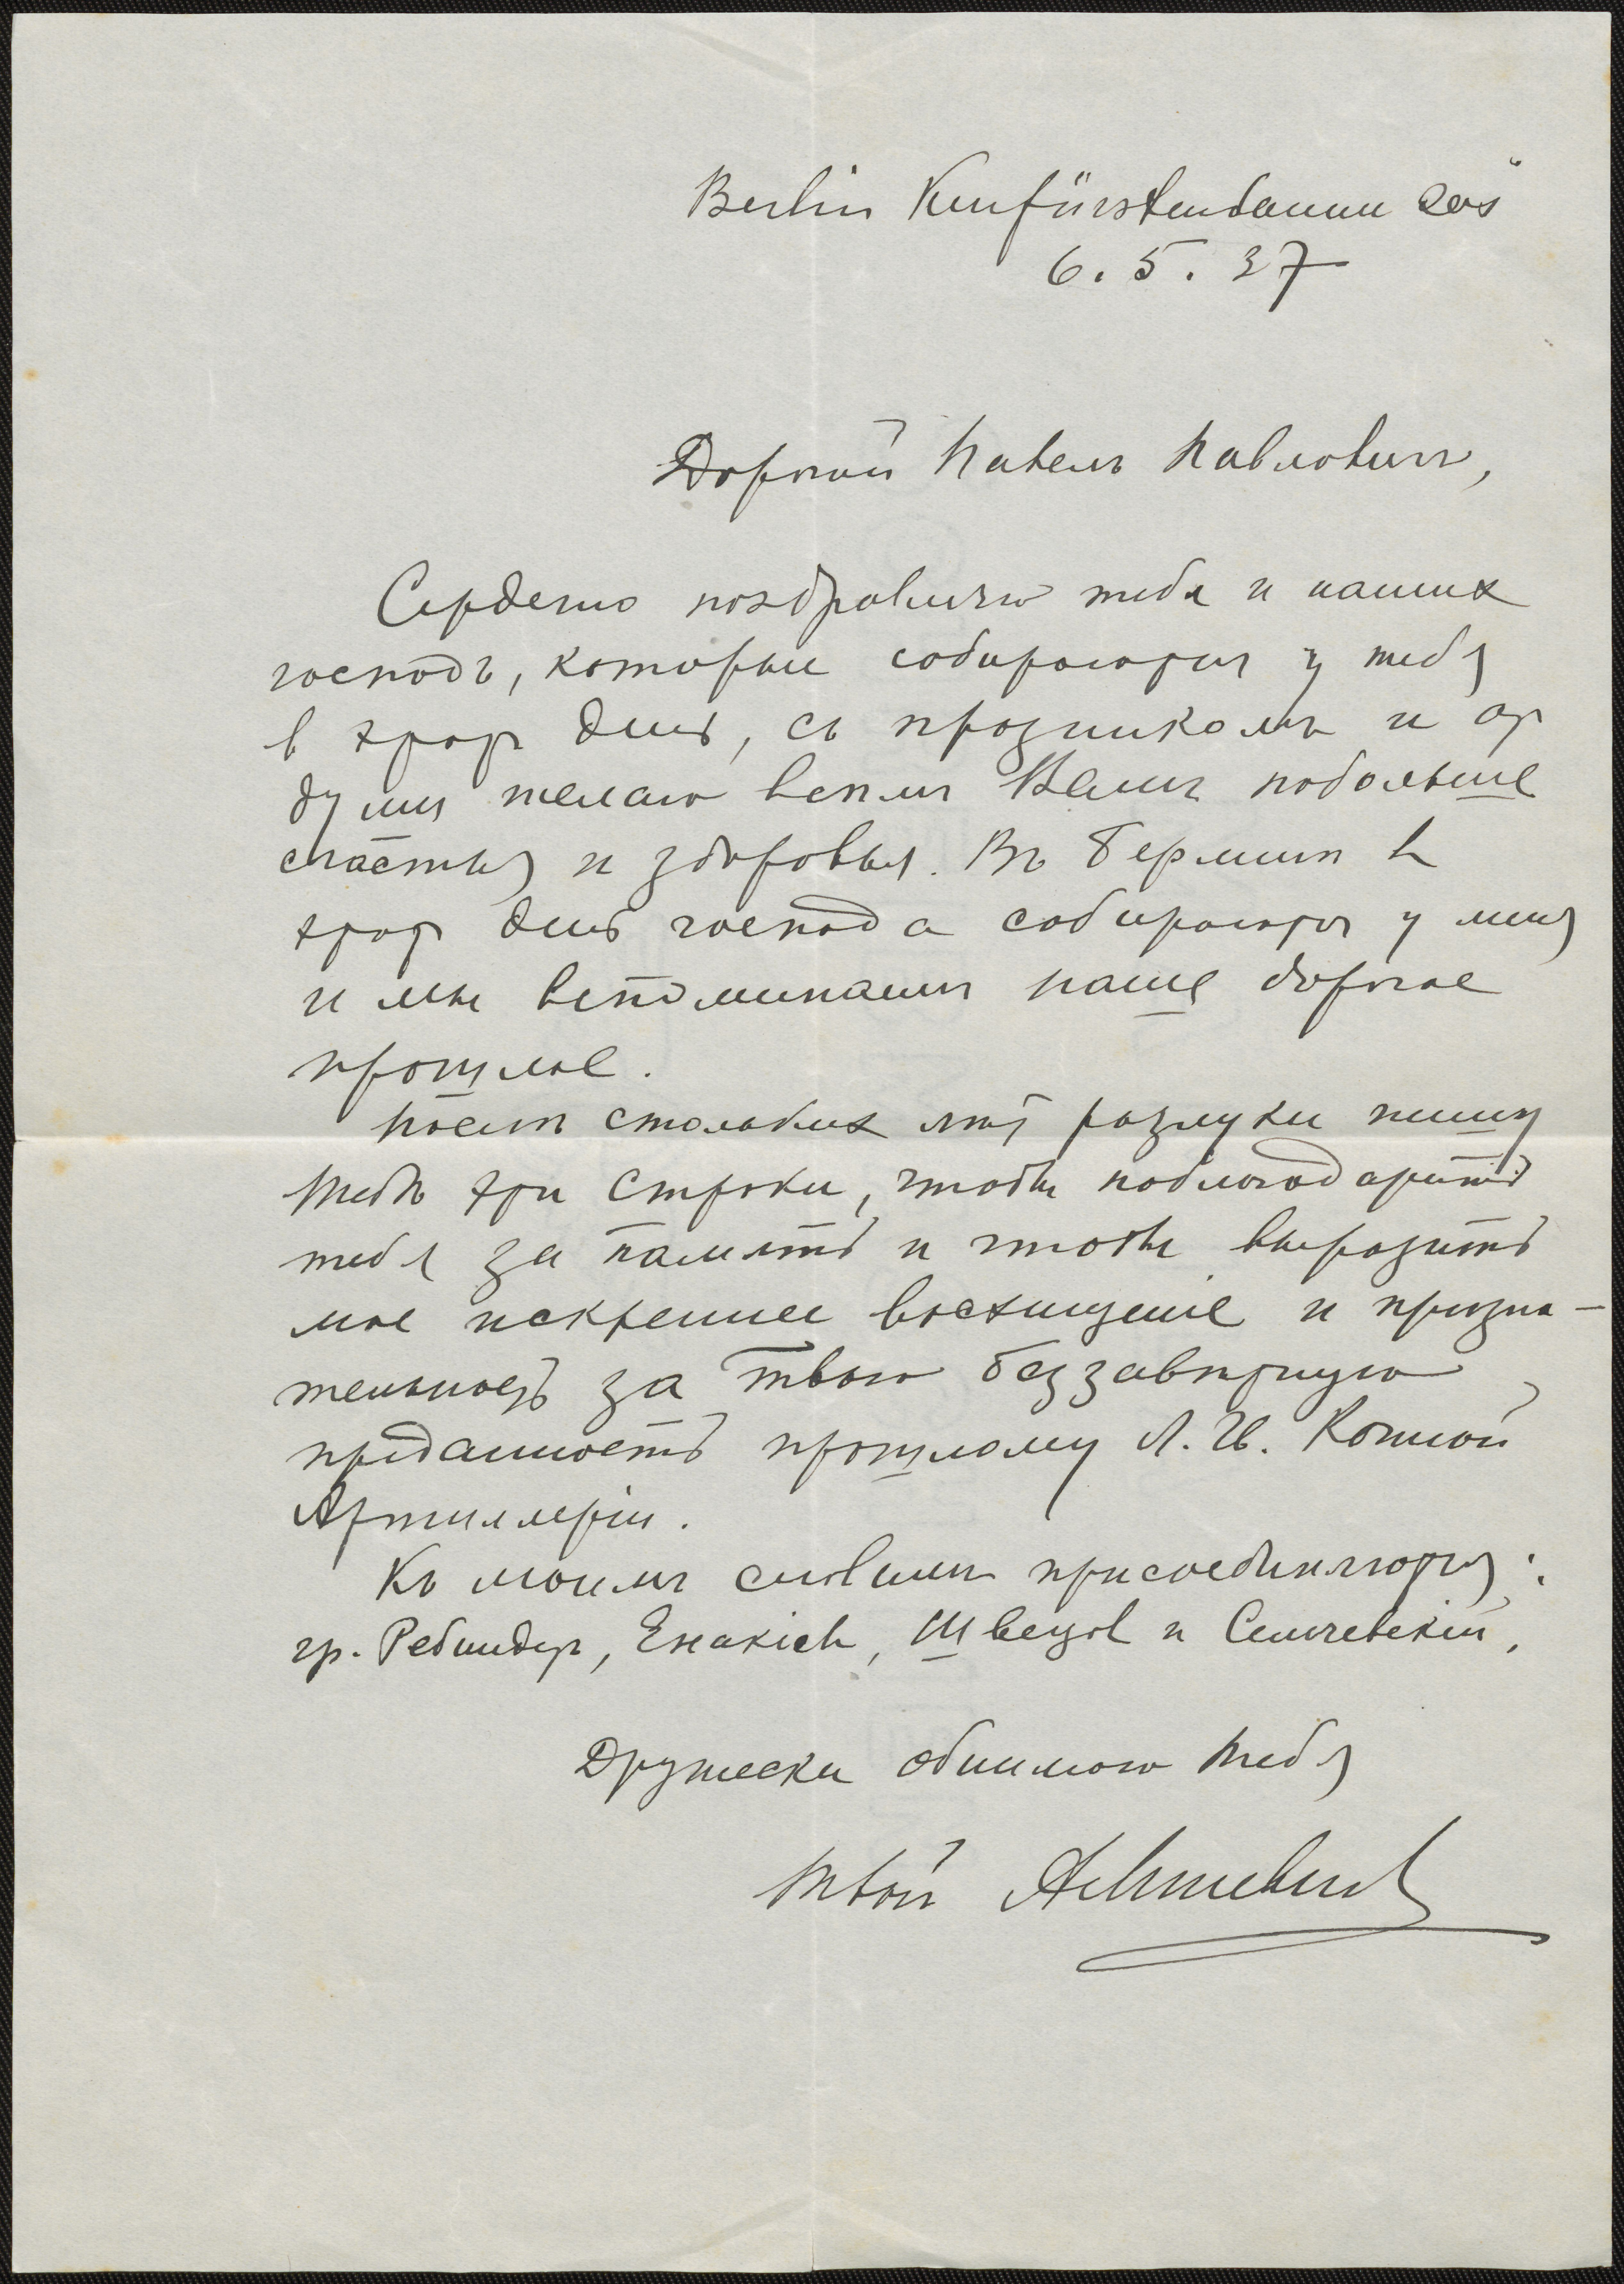 Berlin Kurfürstendamm 205
6. 5. 37
Дорогой Павелъ Павловичъ,
Сердечно поздравляю тебя и наших
господъ, которые собираются у тебя
в этотъ день, съ праздникомъ и от
души желаю всѣмъ Вамъ побольше
счастья и здоровья. Въ Берлинѣ в
этотъ день господа собираются у меня
и мы вспоминаемъ наше дорогое
прошлое.
Послѣ столькихъ лѣтъ разлуки пишу
тебѣ эти строки, чтобы поблагодарить
тебя за память и чтобы выразить
мое искреннее восхищеніе и призна-
тельность за твою беззавѣтную
преданность прошлому Л. Гв. Конной
Артиллеріи.
Къ моимъ словамъ присоединяются:
гр. Ребиндеръ, Енакіев, Швецов и Сенчевскій,
Дружески обнимаю тебя
твой